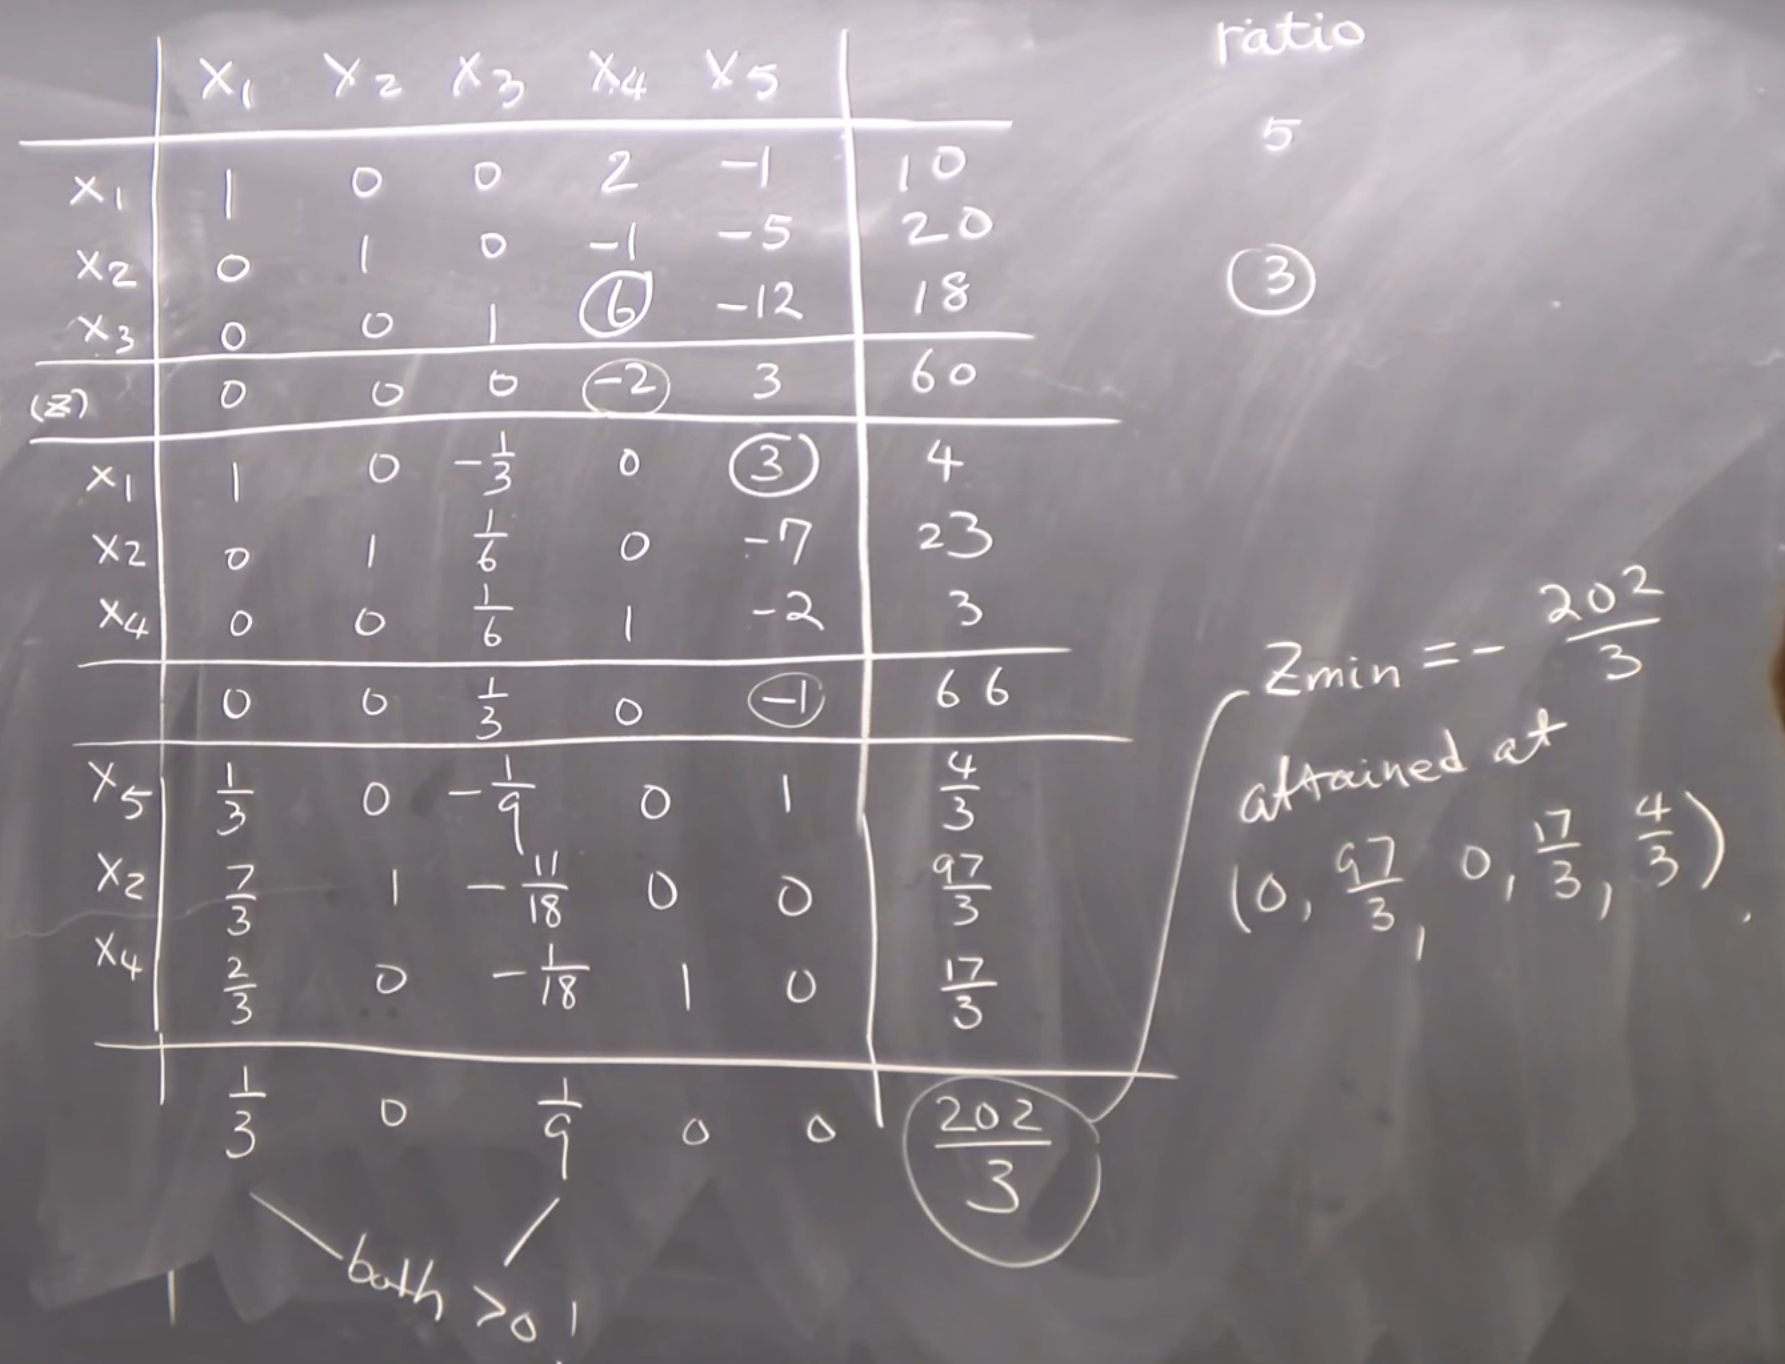 x₁ x₂ x₃ x₄ x₅ ratio
5
x₁ 1 0 0 2 -1 10
x₂ 0 1 0 -1 -5 20
x₃ 0 0 1 6 -12 18 3
(z) 0 0 0 -2 3 60
x₁ 1 0 -1/3 0 3 4
x₂ 0 1 1/6 0 -7 23
x₄ 0 0 1/6 1 -2 3
0 0 1/3 0 -1 66
x₅ 1/3 0 -1/9 0 1 4/3
x₂ 7/3 1 -11/18 0 0 97/3
x₄ 2/3 0 -1/18 1 0 17/3
1/3 0 1/9 0 0 202/3
both >0!
Zmin = - 202/3
attained at
(0, 97/3, 0, 17/3, 4/3).